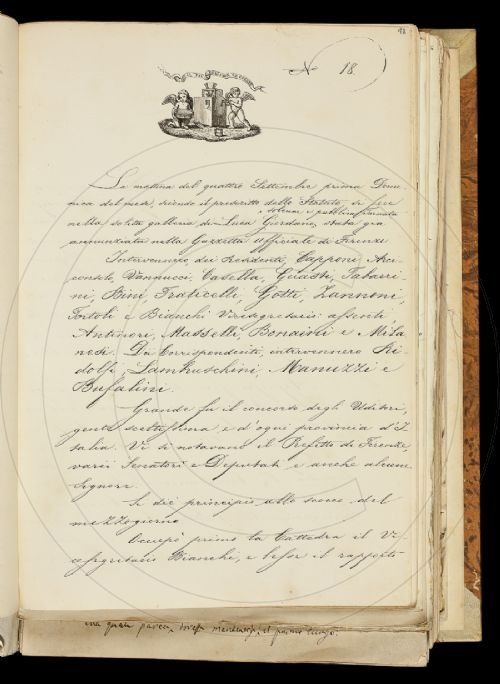 98
N. 18.
La mattina del quattro Settembre prima Dome-
nica del mese, secondo il prescritto dello Statuto, si fece
solenne e pubblica
nella solita galleria di Luca Giordano, stata già
annunziata nella Gazzetta officiale di Firenze
Intervennero dei Residenti, Capponi, Arci-
consolo, Vannucci, Casella, Guasti, Tabarri-
ni, Bini, Fraticelli, Gotti, Zannoni,
Tortoli e Bianchi Vicesegretario: assenti
Antinori, Masselli, Bonaini e Mila-
nesi. Dei Corrispondenti, intervennero Ri-
dolfi, Lambruschini, Manuzzi e
Bufalini.
Grande fu il concorso degli Uditori,
gente sceltissima e d'ogni provincia d'I-
talia. Vi si notavano il Prefetto di Firenze
varii Senatori e Deputati e anche alcune
Signore.
Si diè principio al tocco del
mezzogiorno
Occupò primo la Cattedra il Vi-
cesegretario Bianchi, e lesse il rapporto